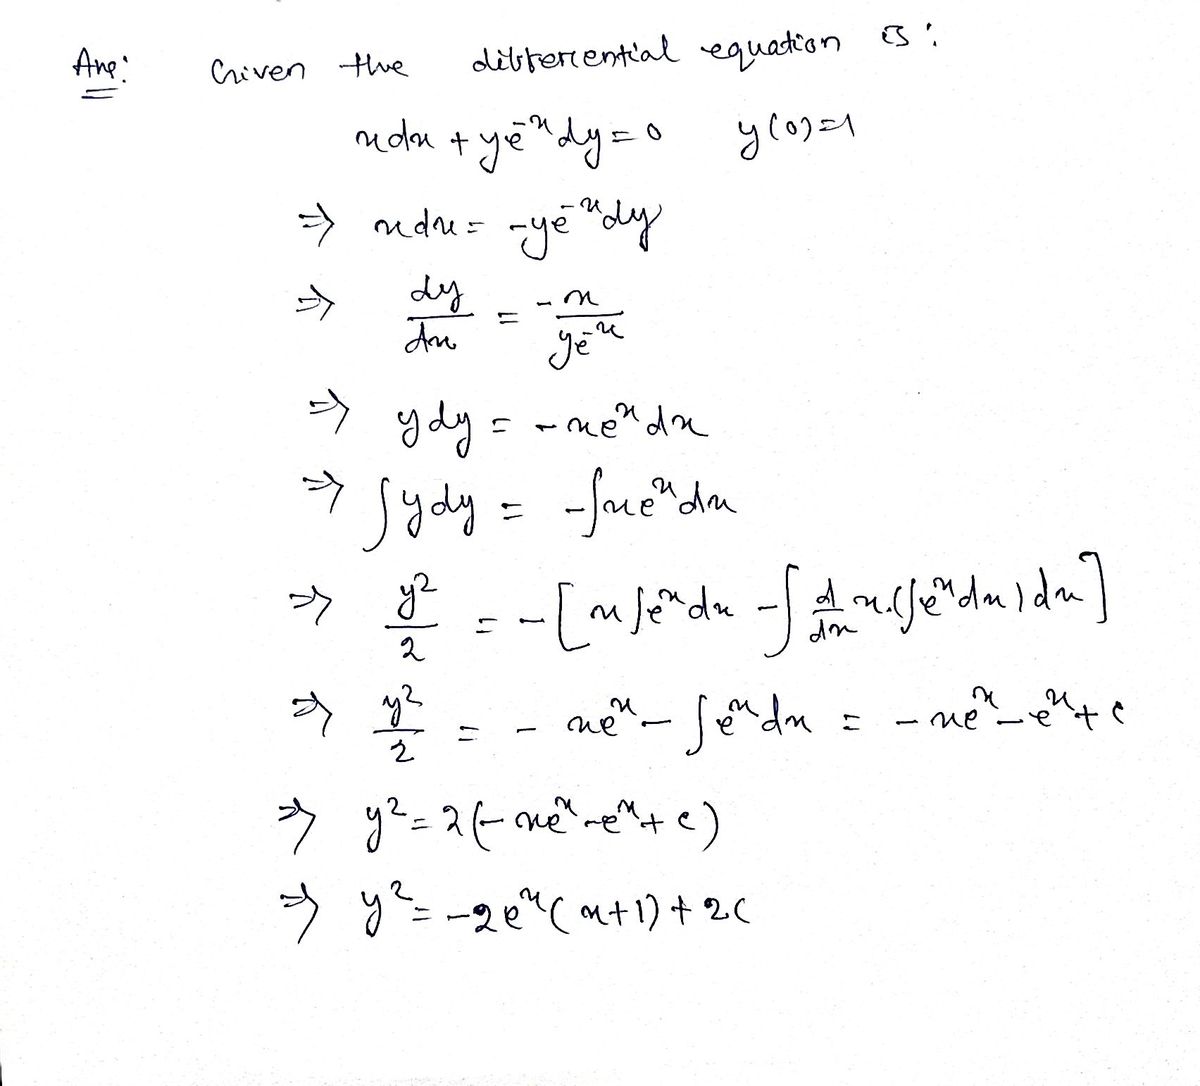 Ans: Given the differential equation is:
xdx + ye^{-x}dy = 0 y(0)=1
⇒ xdx = -ye^{-x}dy
⇒ dy/dx = -x/ye^{-x}
⇒ ydy = -xe^x dx
⇒ ∫ydy = -∫xe^x dx
⇒ y²/2 = -[x∫e^x dx - ∫d/dx x.(∫e^x dx)dx]
⇒ y²/2 = - xe^x - ∫e^x dx = - xe^x - e^x + c
⇒ y² = 2(-xe^x - e^x + c)
⇒ y² = -2e^x(x+1) + 2c